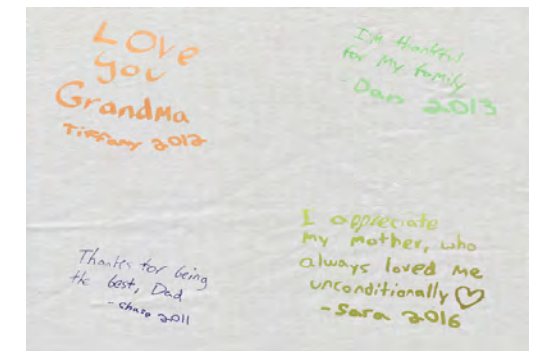 LOVE
you
GrandMa
Tiffany 2012
I'm thankful
for My family
- Dan 2013
Thanks for being
the best, Dad
- Chase 2011
I appreciate
my mother, who
always loved me
unconditionally ♡
- Sara 2016